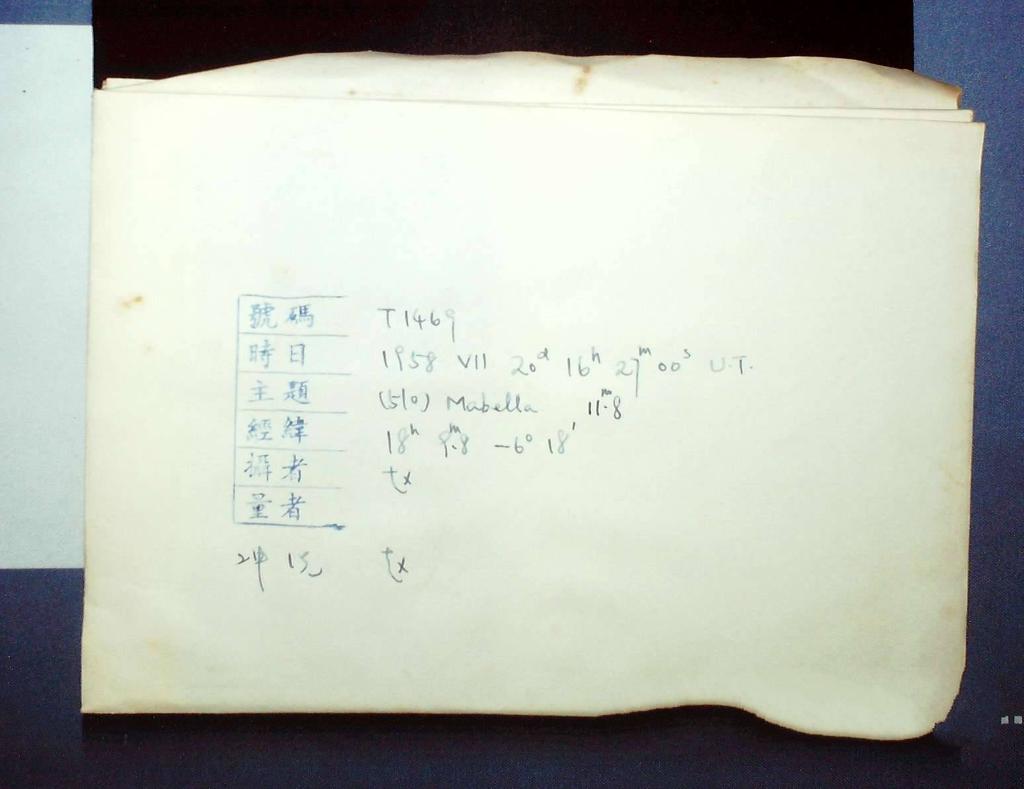 號碼 T1469
時日 1958 VII 20ᵈ 16ʰ 27ᵐ 00ˢ U.T.
主題 (510) Mabella 11ᵐ.8
經緯 18ʰ 9ᵐ.8 -6° 18′
攝者 tx
量者
冲洗 tx